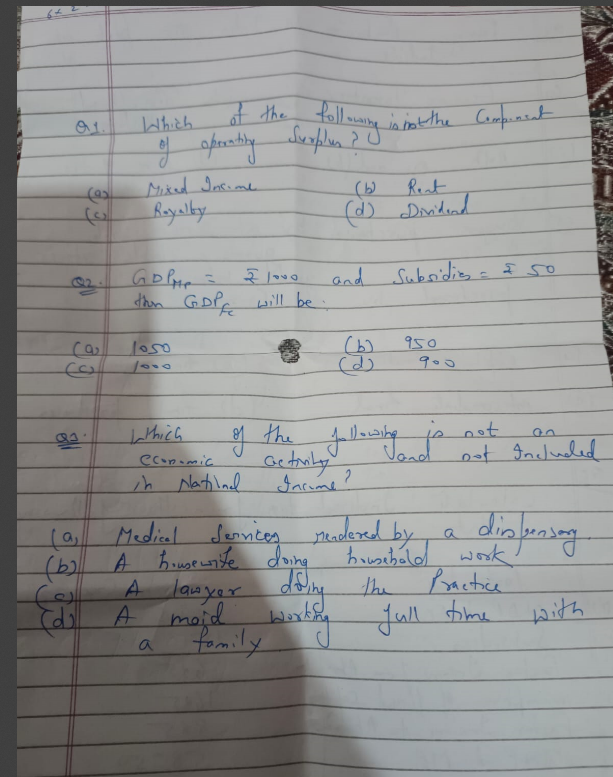 Q1. Which of the following is not the Component
of operating Surplus?
(a) Mixed Income (b) Rent
(c) Royalty (d) Dividend
Q2. GDPMP = ₹ 1000 and Subsidies = ₹ 50
then GDPFC will be:
(a) 1050 (b) 950
(c) 1000 (d) 900
Q3. Which of the following is not an
economic activity and not Included
in National Income?
(a) Medical Services rendered by a dispensary
(b) A housewife doing household work
(c) A lawyer doing the Practice
(d) A maid working full time with
a family